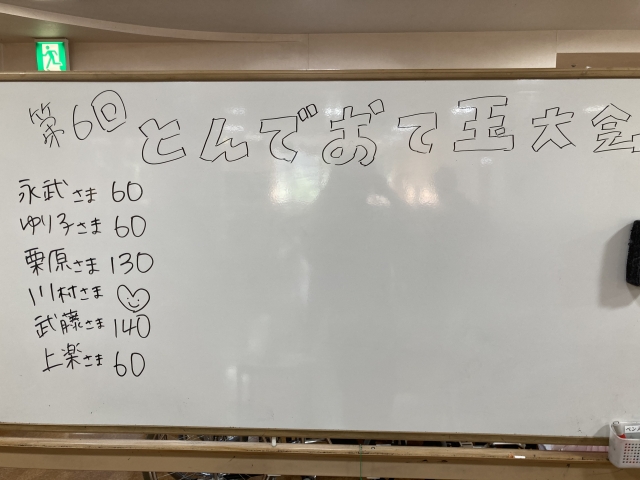 第6回 とんでおて玉大会
永武さま 60
ゆり子さま 60
栗原さま 130
川村さま
武藤さま 140
上楽さま 60